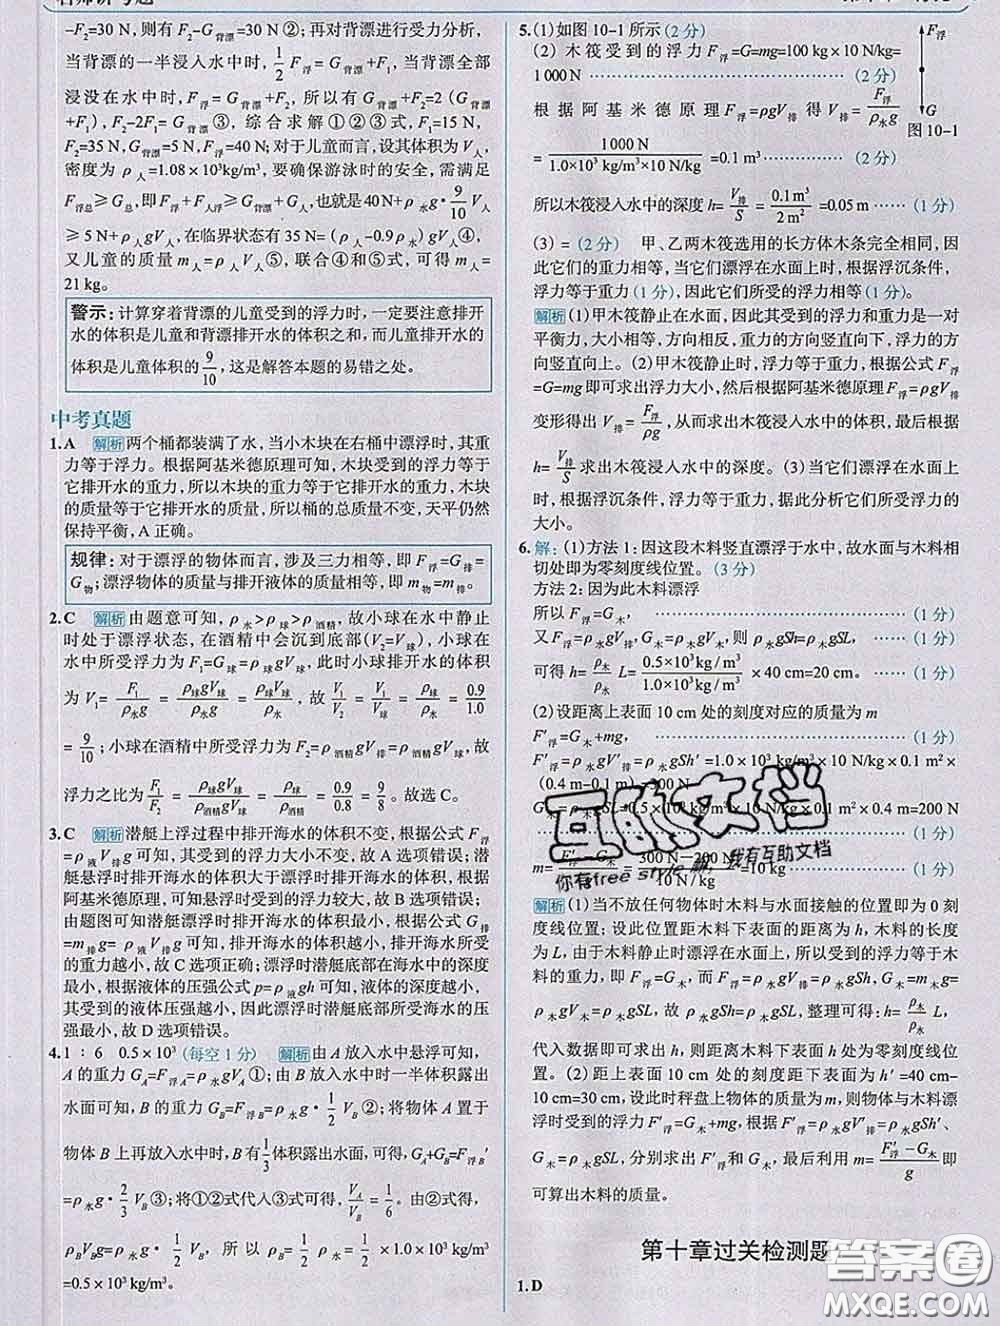 名师讲考题
-F₂=30 N,则有 F₂-G背漂=30 N ②;再对背漂进行受力分析,
当背漂的一半浸入水中时,1/2 F浮=G背漂+F₁,当背漂全部
浸没在水中时,F浮=G背漂+F₂,所以有 G背漂+F₂=2 (G背漂
+F₁),F₂-2F₁=G背漂 ③,综合求解①②③式,F₁=15 N,
F₂=35 N,G背漂=5 N,F浮=40 N;对于儿童而言,设其体积为 V人,
密度为 ρ人=1.08×10³kg/m³,要确保游泳时的安全,需满足
F浮总≥G总,即 F浮+F人浮≥G背漂+G人,也就是 40 N+ρ水g·9/10 V人
≥5 N+ρ人gV人,在临界状态有 35 N=(ρ人-0.9ρ水)gV人④,
又儿童的质量 m人=ρ人V人⑤,联合④和⑤式,可得 m人=
21 kg。
警示:计算穿着背漂的儿童受到的浮力时,一定要注意排开
水的体积是儿童和背漂排开水的体积之和,而儿童排开水的
体积是儿童体积的9/10,这是解答本题的易错之处。
中考真题
1.A 解析 两个桶都装满了水,当小木块在右桶中漂浮时,其重
力等于浮力。根据阿基米德原理可知,木块受到的浮力等于
它排开水的重力,所以木块的重力等于它排开水的重力,木块
的质量等于它排开水的质量,所以桶的总质量不变,天平仍然
保持平衡,A 正确。
规律:对于漂浮的物体而言,涉及三力相等,即 F浮=G排=
G物;漂浮物体的质量与排开液体的质量相等,即 m物=m排。
2.C 解析 由题意可知,ρ水>ρ球>ρ酒精,故小球在水中静止
时处于漂浮状态,在酒精中会沉到底部(V₂=V球),小球在
水中所受浮力为 F₁=G球=ρ球gV球,此时小球排开水的体积
为 V₁=F₁/ρ水g=ρ球gV球/ρ水g=ρ球V球/ρ水,故V₁/V₂=V₁/V球=ρ球/ρ水=0.9/1.0
=9/10;小球在酒精中所受浮力为 F₂=ρ酒精gV排=ρ酒精gV球,故
浮力之比为F₁/F₂=ρ球gV球/ρ酒精gV球=ρ球/ρ酒精=0.9/0.8=9/8。故选 C。
3.C 解析 潜艇上浮过程中排开海水的体积不变,根据公式 F浮
=ρ液V排g 可知,其受到的浮力大小不变,故 A 选项错误;潜
艇悬浮时排开海水的体积大于漂浮时排开海水的体积,根据
阿基米德原理,可知悬浮时受到的浮力较大,故 B 选项错误;
由题图可知潜艇漂浮时排开海水的体积最小,根据公式 G排
=m排g=ρ液V排g 可知,潜艇排开海水的体积越小,排开海水所受
的重力越小,故 C 选项正确;漂浮时潜艇底部在海水中的深度
最小,根据液体的压强公式 p=ρ液gh 可知,液体的深度越小,
其受到的液体压强越小,因此漂浮时潜艇底部所受海水的压
强最小,故 D 选项错误。
4.1∶6 0.5×10³ (每空 1 分) 解析 由 A 放入水中悬浮可知,
A 的重力 GA=F浮A=ρ水gVA ①;由 B 放入水中时一半体积露出
水面可知,B 的重力 GB=F浮B=ρ水g·1/2 VB ②;将物体 A 置于
物体 B 上再放入水中时,B 有1/3体积露出水面,可得,GA+GB=F浮B′
=ρ水g·2/3 VB ③;将①②式代入③式可得,VA/VB=1/6。由②式得,
ρBVBg=ρ水g·1/2 VB,所以 ρB=1/2 ρ水=1/2×1.0×10³ kg/m³
=0.5×10³ kg/m³。
5.(1)如图 10-1 所示(2 分)
(2)木筏受到的浮力 F浮=G=mg=100 kg×10 N/kg=
1 000 N (2 分)
F浮
G
图 10-1
根据阿基米德原理 F浮=ρgV排得 V排=F浮/ρ水g
=1 000 N/1.0×10³ kg/m³×10 N/kg=0.1 m³ (2 分)
所以木筏浸入水中的深度 h=V排/S=0.1 m³/2 m²=0.05 m (1 分)
(3)=(2 分) 甲、乙两木筏选用的长方体木条完全相同,因
此它们的重力相等,当它们漂浮在水面上时,根据浮沉条件,
浮力等于重力(1 分),因此它们所受的浮力相等(1 分)。
解析 (1)甲木筏静止在水面,因此其受到的浮力和重力是一对
平衡力,大小相等,方向相反,重力的方向竖直向下,浮力的方
向竖直向上。(2)甲木筏静止时,浮力等于重力,根据公式 F浮
=G=mg 即可求出浮力大小,然后根据阿基米德原理 F浮=ρgV排
变形得出 V排=F浮/ρg,从而求出木筏浸入水中的体积,再根据
h=V排/S求出木筏浸入水中的深度。(3)当它们漂浮在水面上
时,根据浮沉条件,浮力等于重力,据此分析它们所受浮力的
大小。
6.解:(1)方法 1:因这段木料竖直漂浮于水中,故水面与木料相
切处即为零刻度线位置。(3 分)
方法 2:因为此木料漂浮
所以 F浮=G木, (1 分)
又 F浮=ρ水gV排,G木=ρ木gV木,则 ρ水gSh=ρ木gSL, (1 分)
可得 h=ρ木/ρ水 L=0.5×10³ kg/m³/1.0×10³ kg/m³×40 cm=20 cm。 (1 分)
(2)设距离上表面 10 cm 处的刻度对应的质量为 m
F′浮=G木+mg, (1 分)
F′浮=ρ水gV′排=ρ水gSh′=1.0×10³ kg/m³×10 N/kg×0.1 m²×
(0.4 m-0.1 m)=300 N (1 分)
G木=ρ木gSL=0.5×10³ kg/m³×10 N/kg×0.1 m²×0.4 m=200 N
(1 分)
m=F′浮-G木/g=300 N-200 N/10 N/kg=10 kg (1 分)
解析 (1)当不放任何物体时木料与水面接触的位置即为 0 刻
度线位置;设此位置距木料下表面的距离为 h,木料的长度
为 L,由于木料静止时漂浮在水面上,所以受到的浮力等于木
料的重力,即 F浮=G木,而 F浮=ρ水gV排=ρ水gSh,G木=m木g=
ρ木gV木=ρ木gSL,故 ρ水gSh=ρ木gSL,整理可得:h=ρ木/ρ水 L,
代入数据即可求出 h,则距离木料下表面 h 处为零刻度线位
置。(2)距上表面 10 cm 处的刻度距下表面 h′=40 cm-
10 cm=30 cm,设此时秤盘上物体的质量为 m,则物体与木料漂
浮时受到的浮力 F′浮=G木+mg,根据 F′浮=ρ水gV′排=ρ水gSh′、
G木=ρ木gSL,分别求出 F′浮和 G木,最后利用 m=F′浮-G木/g即
可算出木料的质量。
第十章过关检测题
1.D
互助文档
你有free style嘛,我有互助文档
答案圈
MXQE.COM